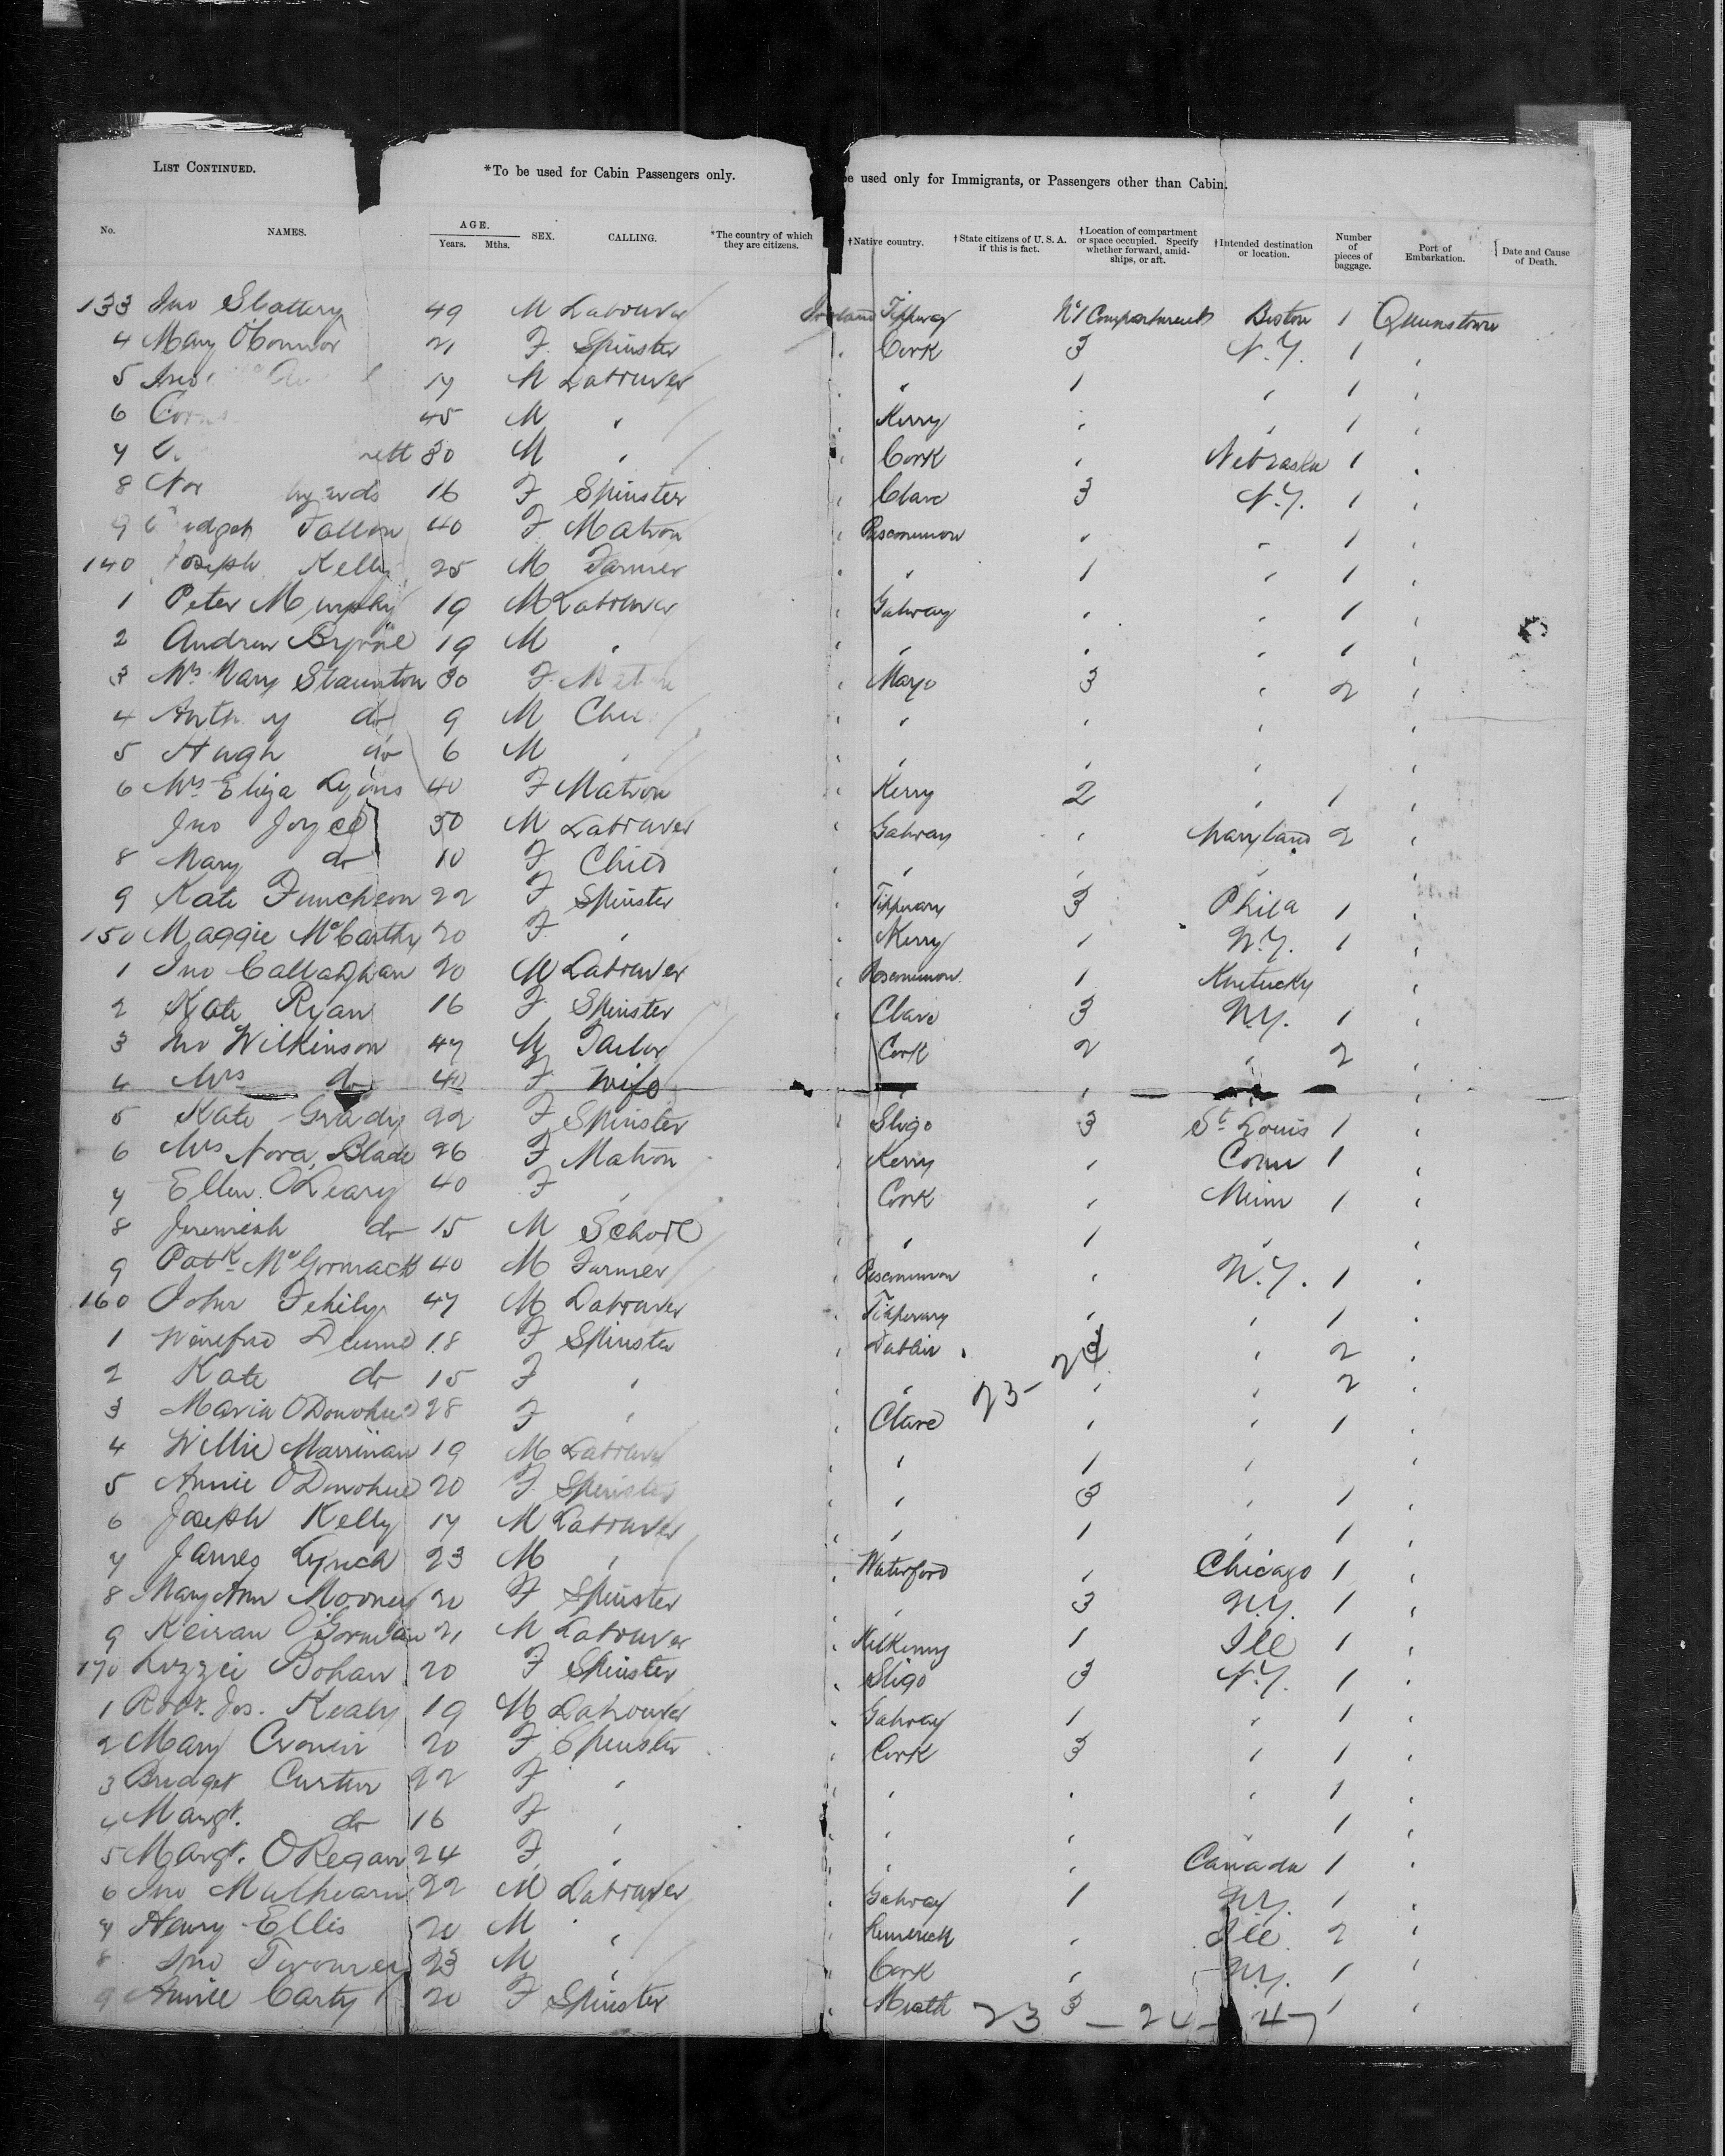 LIST CONTINUED. *To be used for Cabin Passengers only. be used only for Immigrants, or Passengers other than Cabin.
No. NAMES. AGE. Years. Mths. SEX. CALLING. *The country of which they are citizens. †Native country. †State citizens of U. S. A. if this is fact. †Location of compartment or space occupied. Specify whether forward, amidships, or aft. †Intended destination or location. Number of pieces of baggage. Port of Embarkation. Date and Cause of Death.
133 Jno Slattery 49 M Labourer Ireland Tipperary No 1 Compartment Boston 1 Queenstown
4 Mary OConnor 21 F Spinster " Cork 3 N.Y. 1 "
5 Jno 17 M Labourer " " 1 " 1 "
6 Corns 45 M " " Kerry " " 1 "
7 rett 30 M " " Cork " Nebraska 1 "
8 Nor 16 F Spinster " Clare 3 N.Y. 1 "
9 Bridget Fallon 40 F Matron " Roscommon " " 1 "
140 Joseph Kelly 25 M Farmer " " 1 " 1 "
1 Peter Murphy 19 M Labourer " Galway " " 1 "
2 Andrew Byrne 19 M " " " " " 1 "
3 Mrs Mary Staunton 30 F Matron " Mayo 3 " 2 "
4 Anthony do 9 M Child " " " " "
5 Hugh do 6 M " " " " " "
6 Mrs Eliza Lyons 40 F Matron " Kerry 2 " 1 "
Jno Joyce 30 M Labourer " Galway " Maryland 2 "
8 Mary do 10 F Child " " " " "
9 Kate Funcheon 22 F Spinster " Tipperary 3 Phila 1 "
150 Maggie McCarthy 20 F " " Kerry " N.Y. 1 "
1 Jno Callaghan 20 M Labourer " Roscommon 1 Kentucky "
2 Kate Ryan 16 F Spinster " Clare 3 N.Y. 1 "
3 Jno Wilkinson 47 M Tailor " Cork 2 " 2 "
4 Mrs do 40 F Wife " "
5 Kate Grady 22 F Spinster " Sligo 3 St. Louis 1 "
6 Mrs Nora Blade 26 F Matron " Kerry " Conn 1 "
7 Ellen OLeary 40 F " " Cork " Minn 1 "
8 Jeremiah do 15 M School " " 1 " "
9 Patk McGormack 40 M Farmer " Roscommon " N.Y. 1 "
160 John Fehily 47 M Labourer " Tipperary " " 1 "
1 Winefred 18 F Spinster " Dublin " 2 "
2 Kate do 15 F " " " " " 2 "
23 - 24
3 Maria ODonohue 28 F " " Clare " " 1 "
4 Willie Marrinan 19 M Labourer " " 1 " "
5 Annie ODonohue 20 F Spinster " " 3 " 1 "
6 Joseph Kelly 17 M Labourer " " 1 " 1 "
7 James Lynch 23 M " " Waterford " Chicago 1 "
8 Mary Ann Mooney 20 F Spinster " " 3 N.Y. 1 "
9 Keiran OGorman 21 M Labourer " Kilkenny 1 Ill 1 "
170 Lizzie Bohan 20 F Spinster " Sligo 3 N.Y. 1 "
1 Robt. Jos. Kealy 19 M Labourer " Galway 1 " 1 "
2 Mary Cronin 20 F Spinster " Cork 3 " 1 "
3 Bridget Curtin 22 F " " " " " 1 "
4 Margt. do 16 F " " " " " 1 "
5 Margt. ORegan 24 F " " " " Canada 1 "
6 Jno Mulhearn 22 M Labourer " Galway 1 N.Y. 1 "
7 Henry Ellis 20 M " " Limerick " Ill 2 "
8 Jno Twomey 23 M " " Cork " N.Y. 1 "
9 Annie Carty 20 F Spinster " Meath 3 " 1 "
23 - 24 - 47